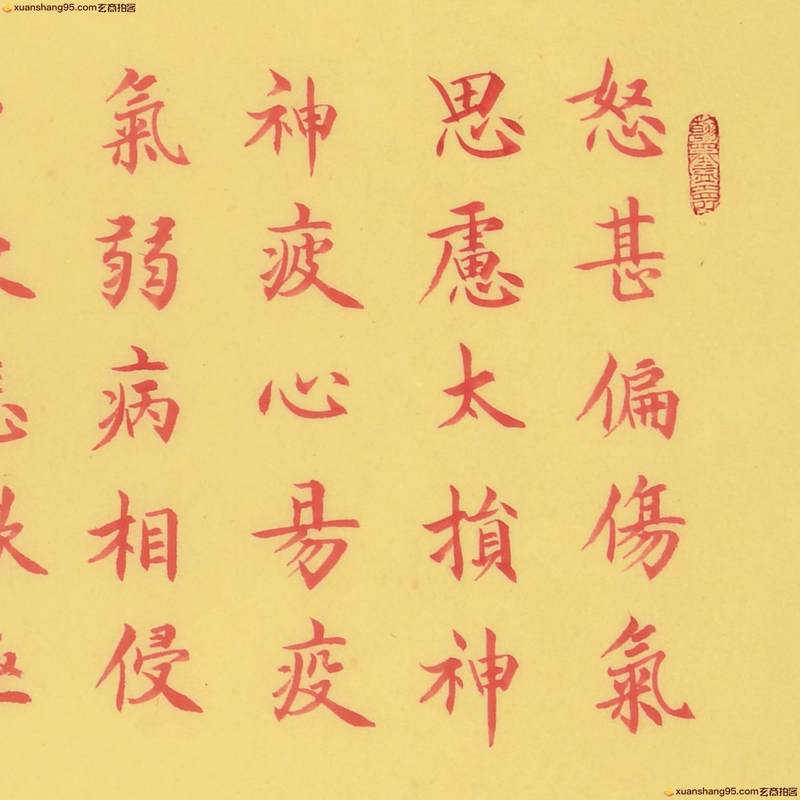 xuanshang95.com玄商拍客
怒甚偏傷氣
思慮太損神
神疲心昜疫
氣弱病相侵
xuanshang95.com玄商拍客